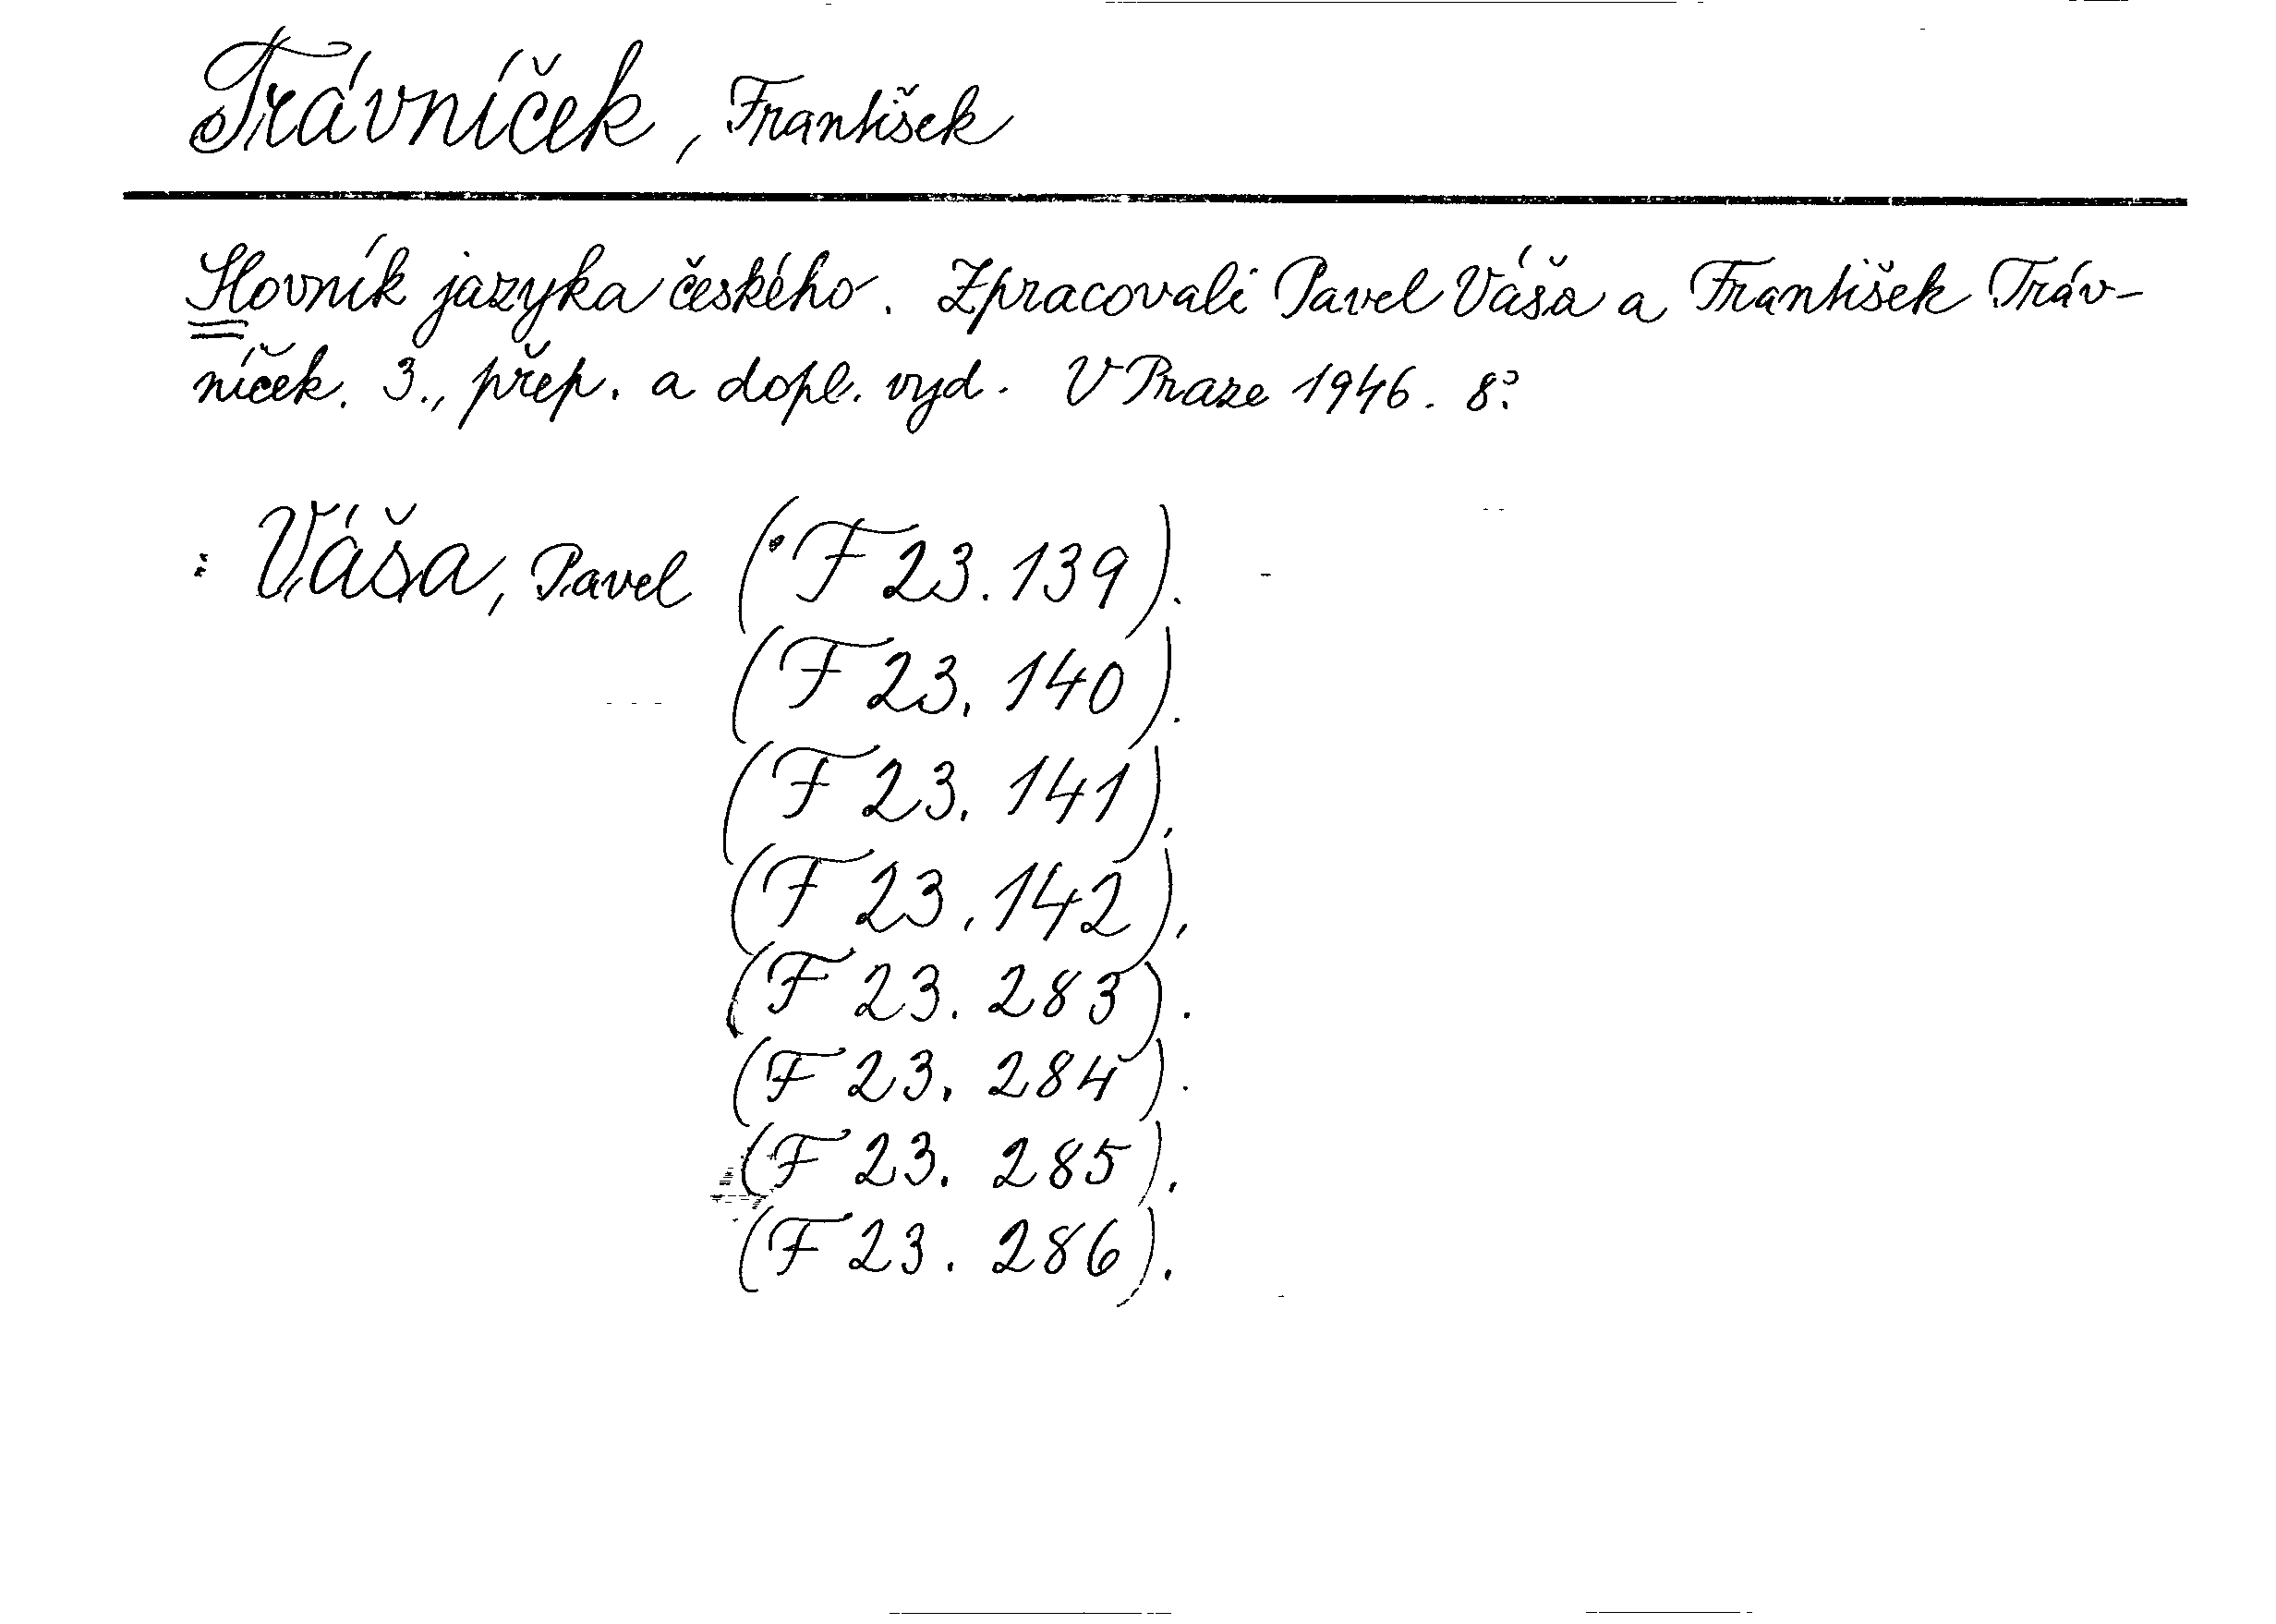 Trávníček, František
Slovník jazyka českého. Zpracovali Pavel Váša a František Tráv-
níček. 3., přep. a dopl. vyd. V Praze 1946. 8°.
: Váša, Pavel (F 23.139).
(F 23.140).
(F 23.141).
(F 23.142).
(F 23.283).
(F 23.284).
(F 23.285).
(F 23.286).